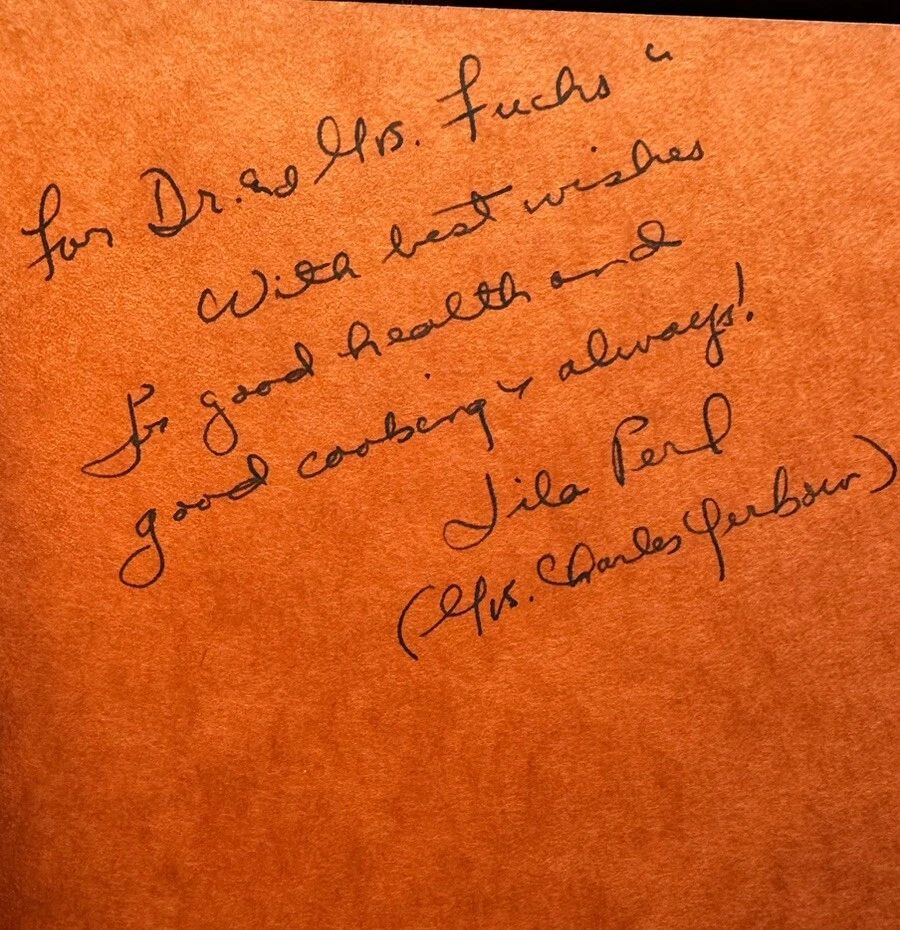 For Dr. and Mrs. Fuchs "
With best wishes
for good health and
good cooking, always!
Lila Perl
(Mrs. Charles Yerkow)